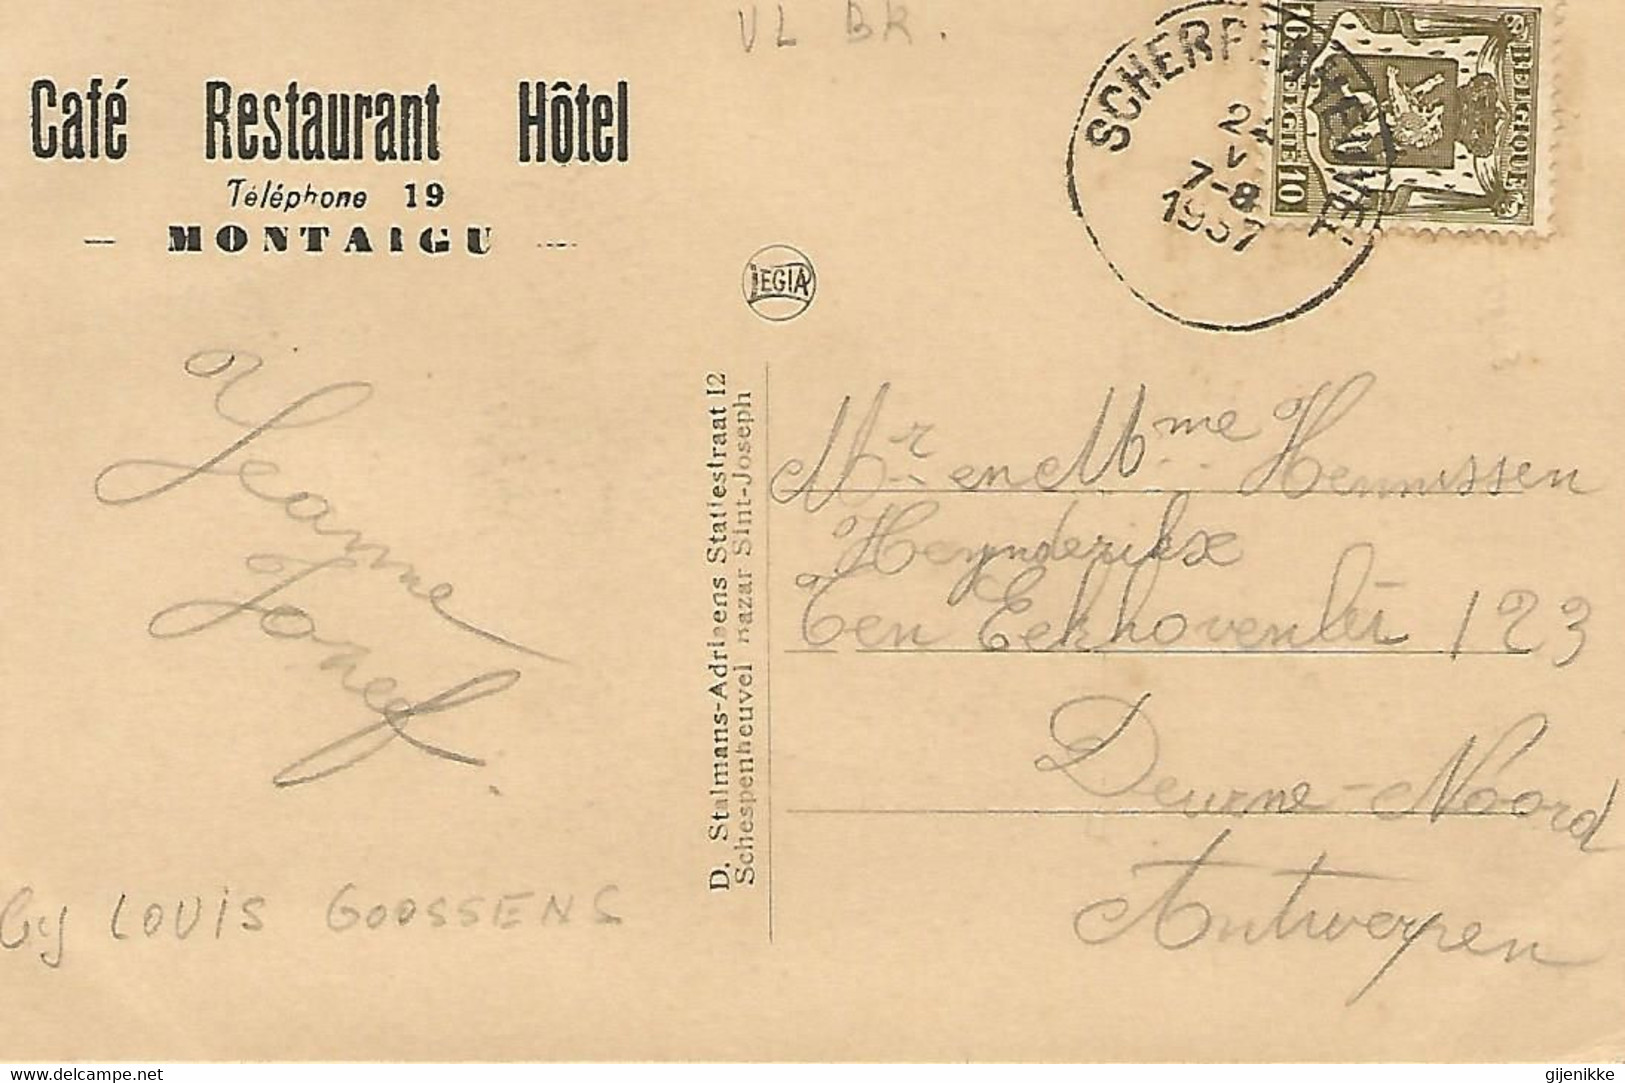 VL BR.
Café Restaurant Hôtel
Téléphone 19
- MONTAIGU -
SCHERPENHEUVEL
7-8
1937
BELGIQUE
BELGIE 10
LEGIA
Jeanne
Jonef.
Bij LOUIS GOOSSENS
D. Stalmans-Adriaens Statiestraat 12
Schespenheuvel bazar Sint-Joseph
Mr en Mme Hennissen
Heynderikx
Ten Eekhovenlei 123
Deurne-Noord
Antwerpen
gijenikke